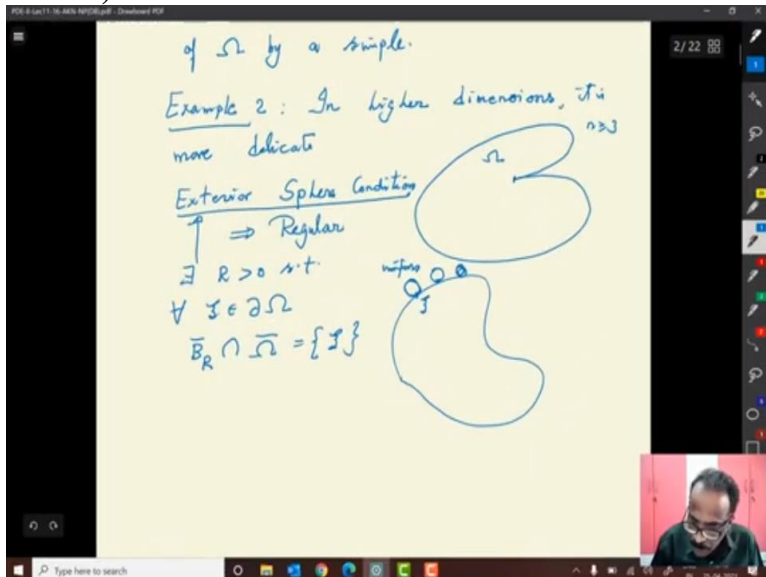 PDE-II-Lec11-16-AKN-NP(DB).pdf - Drawboard PDF
2/22
of Ω by a simple.
Example 2 : In higher dimensions, it is
more delicate
n≥3
Ω
Exterior Sphere Condition
⇒ Regular
∃ R > 0 s.t.
uniform
∀ ξ ∈ ∂Ω
ξ
B̄_R ∩ Ω̄ = {ξ}
Type here to search